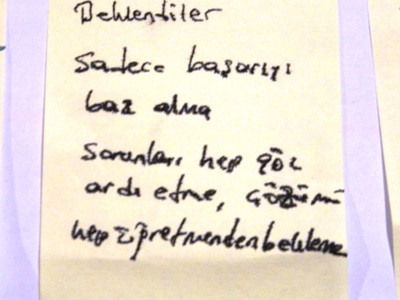 Beklentiler
Sadece başarıyı
baz alma
Sorunları hep göz
ardı etme, çözümü
hep öğretmenden bekleme